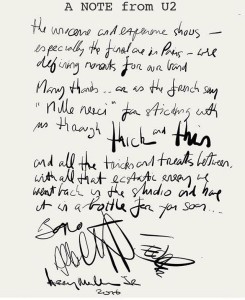 A NOTE from U2
The innocence and experience shows –
especially the final one in Paris – were
defining moments for our band
Many thanks.. or as the french say
"Mille merci" for sticking with
us through thick and thin
and all the tricks and treats between.
with all that ecstatic energy we
went back in the studio and have
it in a bottle for you soon...
Bono
Larry Mullen Jr